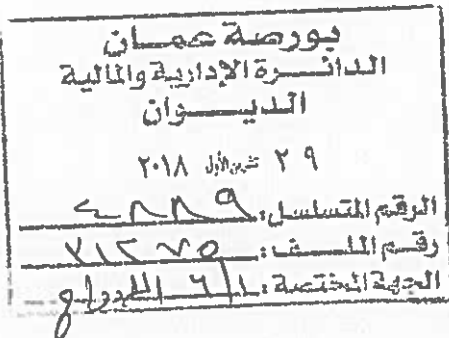 بورصة عمان
الدائرة الإدارية والمالية
الديوان
٢٩ تشرين الأول ٢٠١٨
الرقم المتسلسل: ٤٨٨٩
رقم الملف: ٧١٢٧٥
الجهة المختصة: